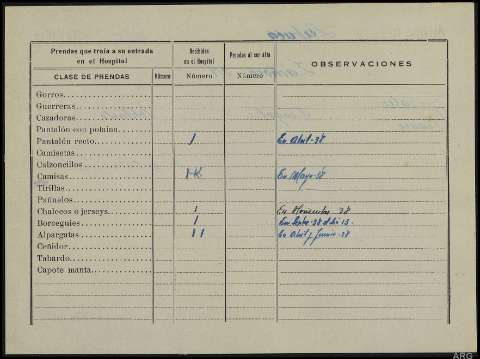 Prendas que traía a su entrada en el Hospital | Recibidas en el Hospital | Prendas al ser Alta | OBSERVACIONES
CLASE DE PRENDAS | Número | Número | Número
Gorros
Guerreras
Cazadoras
Pantalón con polaina
Pantalón recto | 1 | En Abril-38
Camisetas
Calzoncillos
Camisas | 1-K | En Mayo-38
Tirillas
Pañuelos
Chalecos o jerseys | 1 | En Noviembre 38
Borceguíes | 1 | 38 día 15-
Alpargatas | 11 | En Abril y Junio-38
Ceñidor
Tabardo
Capote manta
ARG